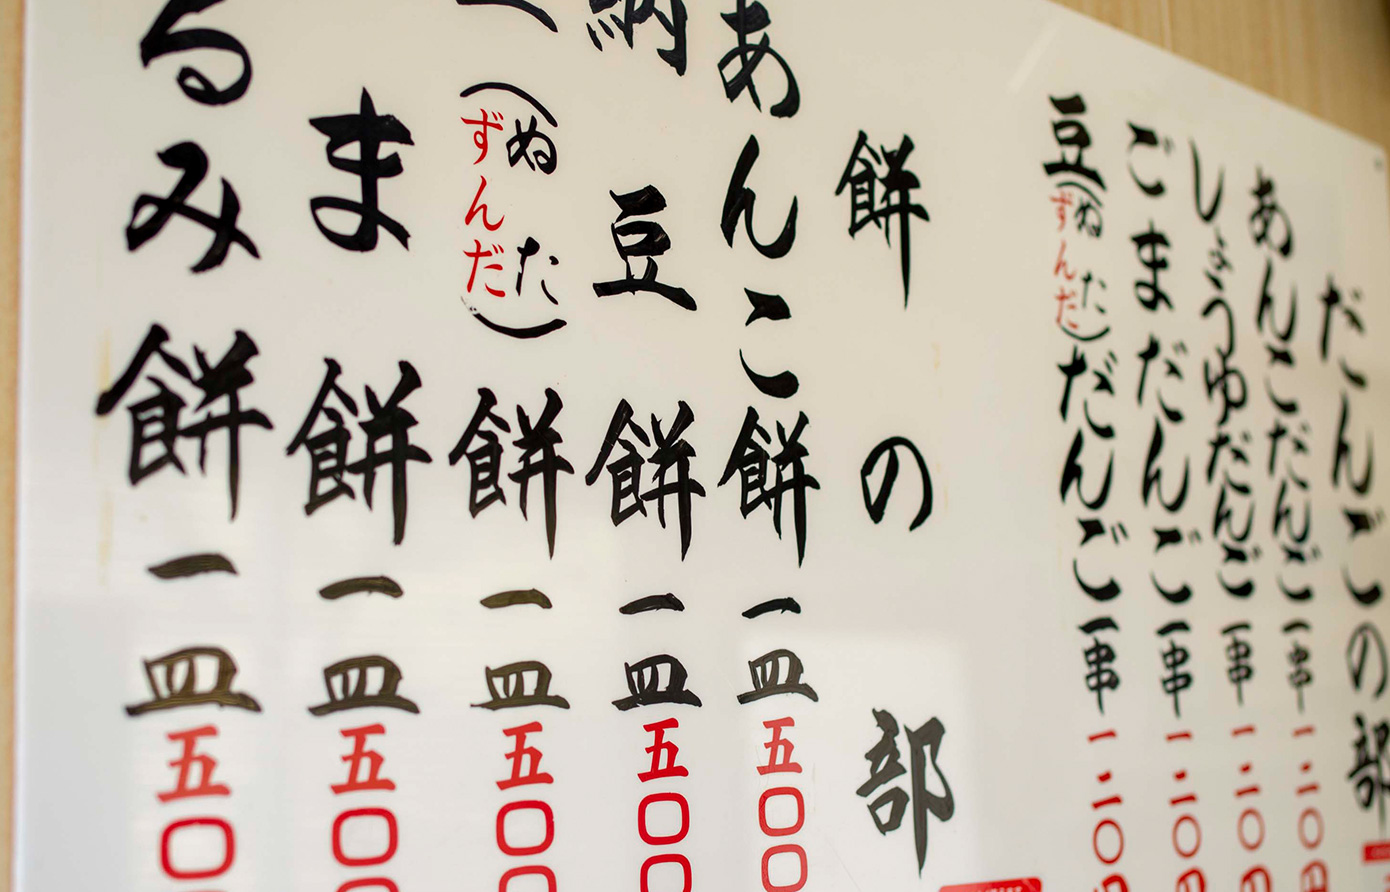 だんごの部
あんこだんご一串一二〇
しょうゆだんご一串一二〇
ごまだんご一串一二〇
豆(ぬたずんだ)だんご一串一二〇
餅の部
あんこ餅一皿五〇〇
納豆餅一皿五〇〇
(ぬたずんだ)餅一皿五〇〇
ま餅一皿五〇〇
るみ餅一皿五〇